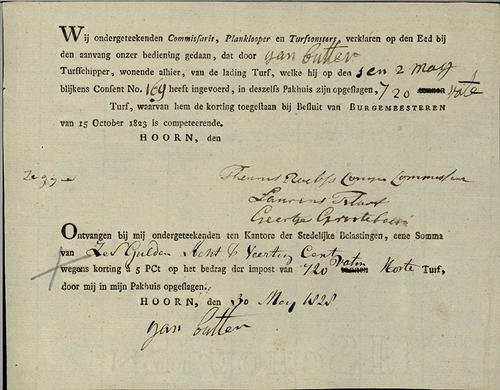 Wij ondergeteekenden Commissaris, Planklooper en Turftonsters, verklaren op den Eed bij
den aanvang onzer bediening gedaan, dat door Jan Cutten
Turfschipper, wonende alhier, van de lading Turf, welke hij op den 2 May
blijkens Consent No. 169 heeft ingevoerd, in deszelfs Pakhuis zijn opgeslagen, 720 tonnen Vate
Turf, waarvan hem de korting toegestaan bij Besluit van BURGEMEESTEREN
van 15 October 1823 is competeerende.
HOORN, den
Zegge
Commissaris
Laurens
Geertje Grootebeen
Ontvangen bij mij ondergeteekenden ten Kantore der Stedelijke Belastingen, eene Somma
van Zes Gulden Acht & Veertig Cent
wegens korting à 5 PCt op het bedrag der impost van 720 tonnen Vaten Korte Turf,
door mij in mijn Pakhuis opgeslagen.
HOORN, den 30 May 1828
Jan Cutten